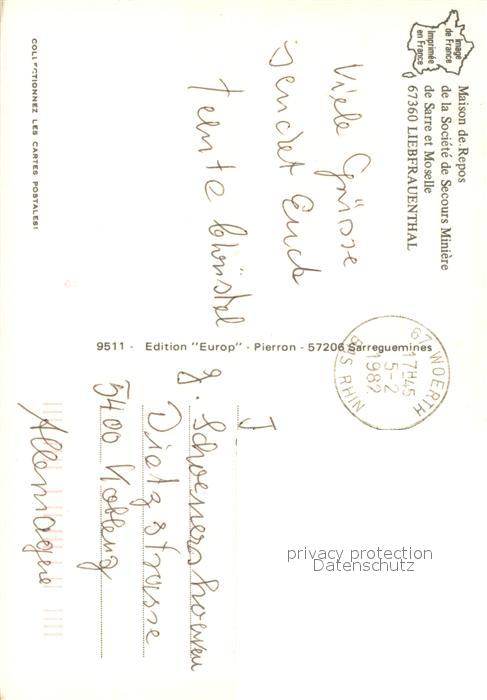 Maison de Repos
de la Société de Secours Minière
de Sarre et Moselle
67360 LIEBFRAUENTHAL
Image
de France
Imprimée
en France
Viele Grüsse
sendet Euch
Tante Christel
COLLECTIONNEZ LES CARTES POSTALES!
9511 - Edition "Europ" - Pierron - 57206 Sarreguemines
67 WOERTH
17H45
5-2
1982
BAS RHIN
J
J. Schoenershoven
Dietzstrasse
5400 Koblenz
Allemagne
privacy protection
Datenschutz